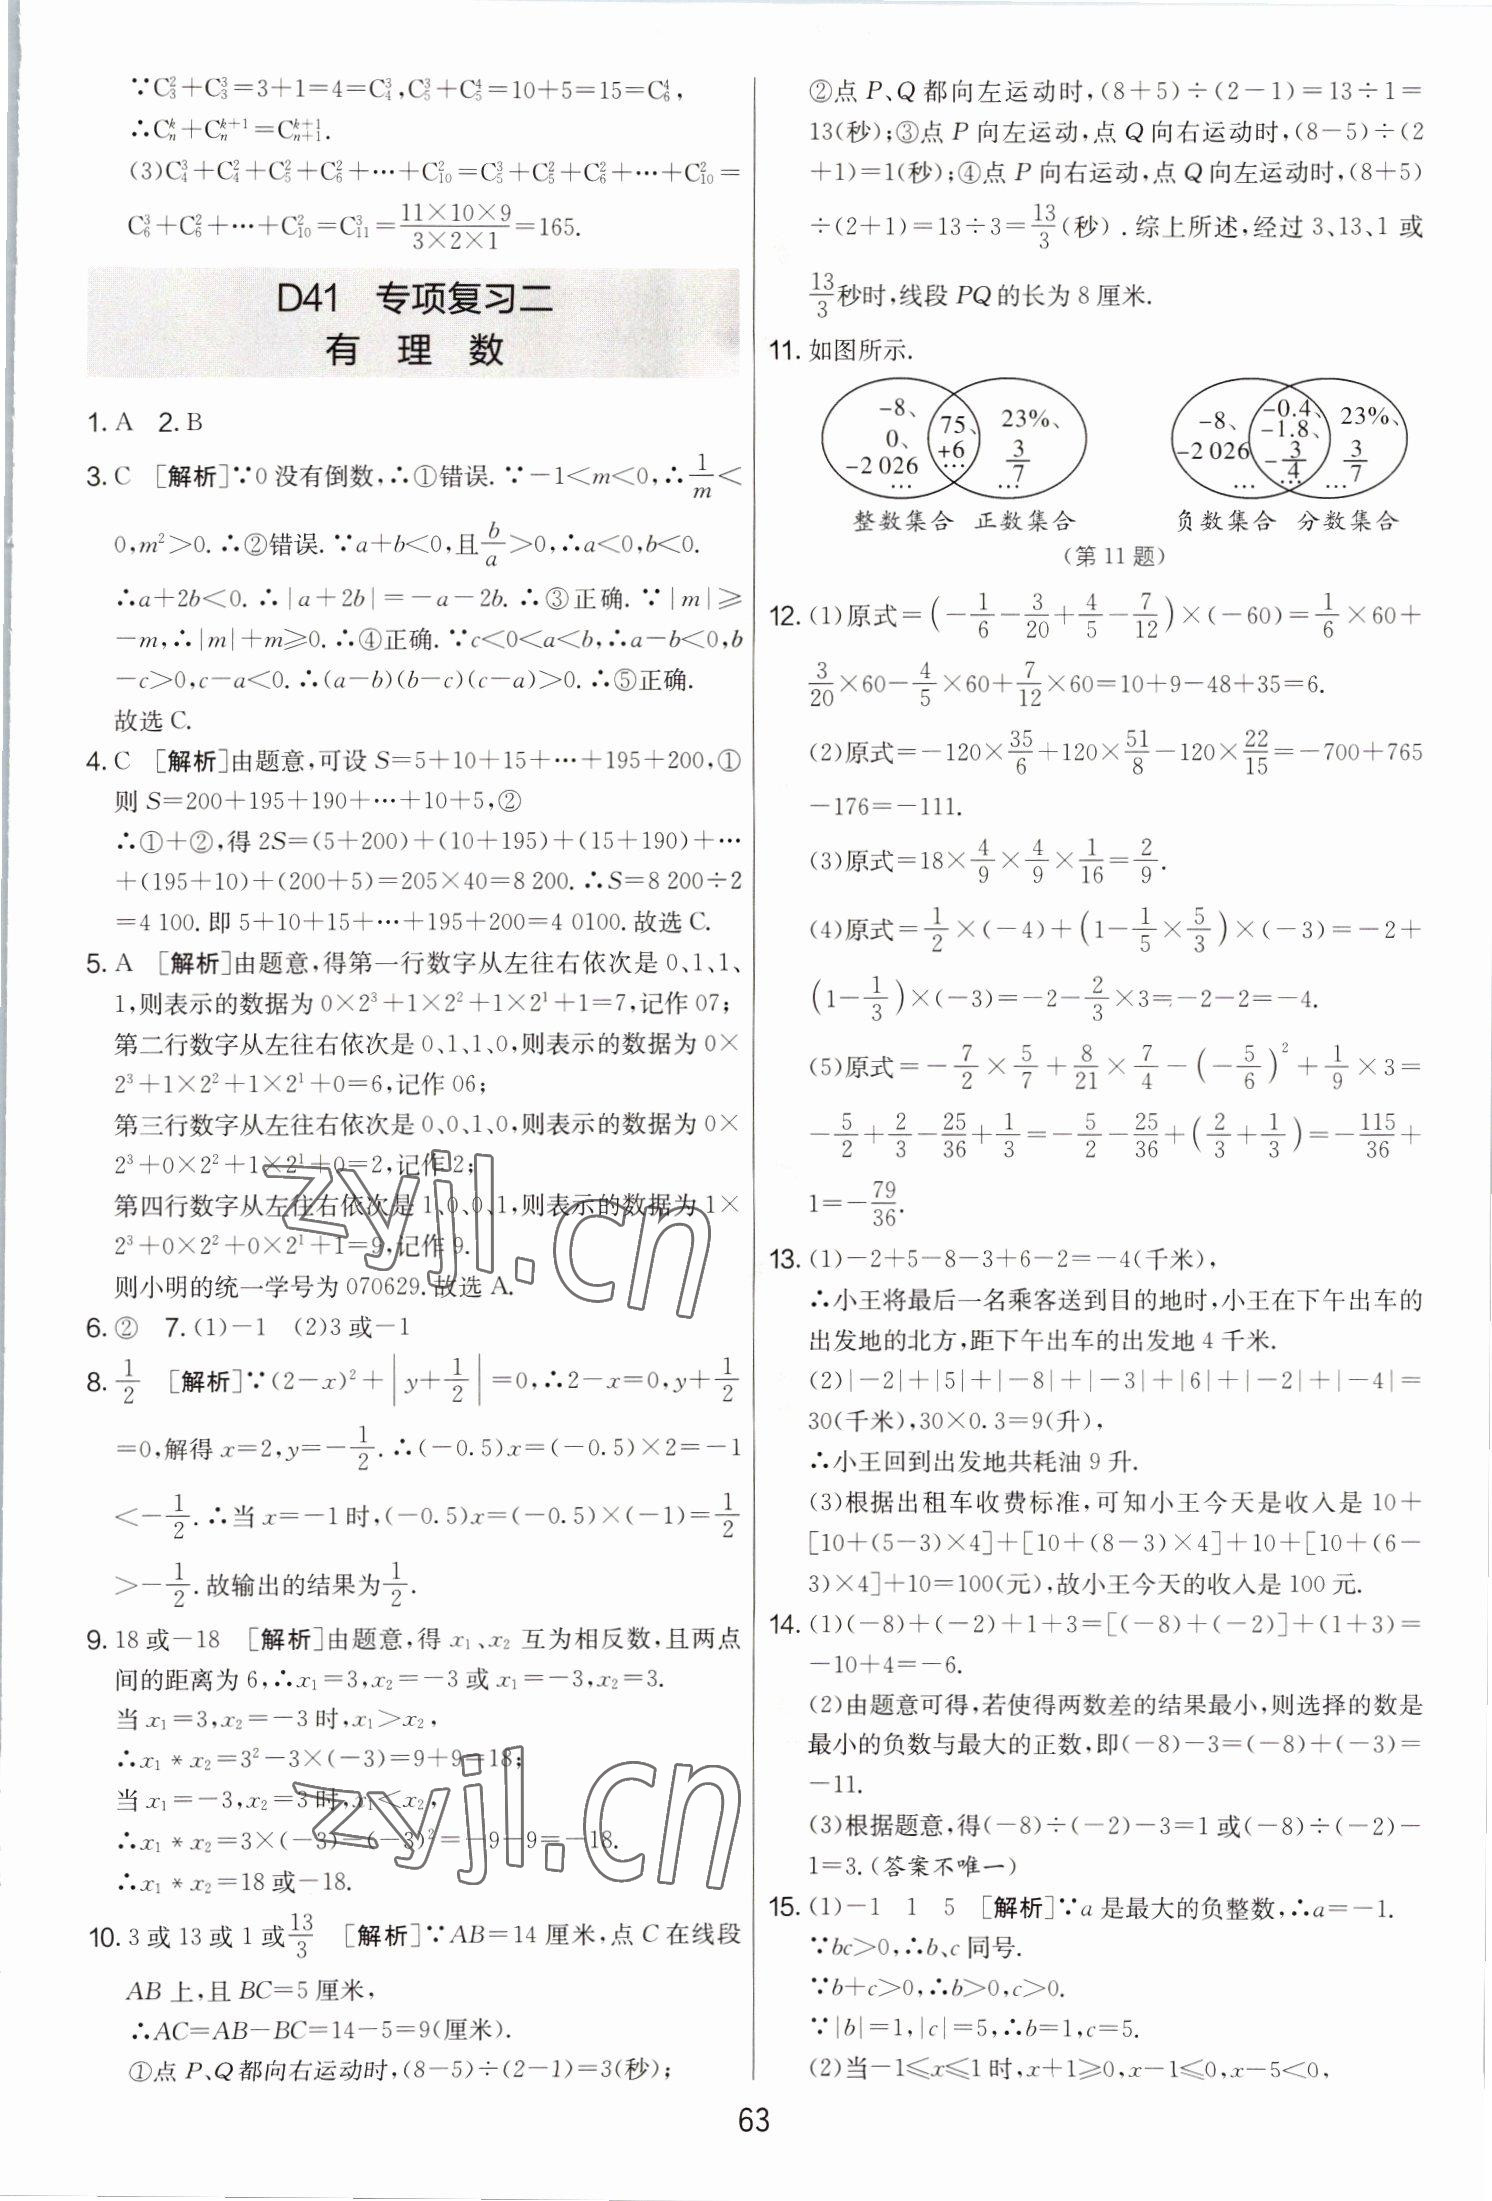 ∵C₃²+C₃³=3+1=4=C₄³,C₅³+C₅⁴=10+5=15=C₆⁴,
∴Cₙᵏ+Cₙᵏ⁺¹=Cₙ₊₁ᵏ⁺¹.
(3)C₄³+C₄²+C₅²+C₆²+…+C₁₀²=C₅³+C₅²+C₆²+…+C₁₀²=
C₆³+C₆²+…+C₁₀²=C₁₁³=11×10×9/3×2×1=165.
D41 专项复习二
有 理 数
1. A 2. B
3. C [解析]∵0没有倒数,∴①错误.∵-1<m<0,∴1/m<
0,m²>0.∴②错误.∵a+b<0,且b/a>0,∴a<0,b<0.
∴a+2b<0.∴|a+2b|=-a-2b.∴③正确.∵|m|≥
-m,∴|m|+m≥0.∴④正确.∵c<0<a<b,∴a-b<0,b
-c>0,c-a<0.∴(a-b)(b-c)(c-a)>0.∴⑤正确.
故选C.
4. C [解析]由题意,可设S=5+10+15+…+195+200,①
则S=200+195+190+…+10+5,②
∴①+②,得2S=(5+200)+(10+195)+(15+190)+…
+(195+10)+(200+5)=205×40=8 200.∴S=8 200÷2
=4 100.即5+10+15+…+195+200=4 0100.故选C.
5. A [解析]由题意,得第一行数字从左往右依次是0、1、1、
1,则表示的数据为0×2³+1×2²+1×2¹+1=7,记作07;
第二行数字从左往右依次是0、1、1、0,则表示的数据为0×
2³+1×2²+1×2¹+0=6,记作06;
第三行数字从左往右依次是0、0、1、0,则表示的数据为0×
2³+0×2²+1×2¹+0=2,记作2;
第四行数字从左往右依次是1、0、0、1,则表示的数据为1×
2³+0×2²+0×2¹+1=9,记作9.
则小明的统一学号为070629.故选A.
6. ② 7. (1)-1 (2)3或-1
8. 1/2 [解析]∵(2-x)²+|y+1/2|=0,∴2-x=0,y+1/2
=0,解得x=2,y=-1/2.∴(-0.5)x=(-0.5)×2=-1
<-1/2.∴当x=-1时,(-0.5)x=(-0.5)×(-1)=1/2
>-1/2.故输出的结果为1/2.
9. 18或-18 [解析]由题意,得x₁、x₂互为相反数,且两点
间的距离为6,∴x₁=3,x₂=-3或x₁=-3,x₂=3.
当x₁=3,x₂=-3时,x₁>x₂,
∴x₁*x₂=3²-3×(-3)=9+9=18;
当x₁=-3,x₂=3时,x₁<x₂,
∴x₁*x₂=3×(-3)-6-3)²=-9-9=-18.
∴x₁*x₂=18或-18.
10. 3或13或1或13/3 [解析]∵AB=14厘米,点C在线段
AB上,且BC=5厘米,
∴AC=AB-BC=14-5=9(厘米).
①点P、Q都向右运动时,(8-5)÷(2-1)=3(秒);
②点P、Q都向左运动时,(8+5)÷(2-1)=13÷1=
13(秒);③点P向左运动,点Q向右运动时,(8-5)÷(2
+1)=1(秒);④点P向右运动,点Q向左运动时,(8+5)
÷(2+1)=13÷3=13/3(秒).综上所述,经过3、13、1或
13/3秒时,线段PQ的长为8厘米.
11. 如图所示.
-8、 0、 -2 026 … 75、 +6 … 23%、 3/7 …
-8、 -2 026 … -0.4、 -1.8、 -3/4 … 23%、 3/7 …
整数集合 正数集合 负数集合 分数集合
(第11题)
12. (1)原式=(-1/6-3/20+4/5-7/12)×(-60)=1/6×60+
3/20×60-4/5×60+7/12×60=10+9-48+35=6.
(2)原式=-120×35/6+120×51/8-120×22/15=-700+765
-176=-111.
(3)原式=18×4/9×4/9×1/16=2/9.
(4)原式=1/2×(-4)+(1-1/5×5/3)×(-3)=-2+
(1-1/3)×(-3)=-2-2/3×3=-2-2=-4.
(5)原式=-7/2×5/7+8/21×7/4-(-5/6)²+1/9×3=
-5/2+2/3-25/36+1/3=-5/2-25/36+(2/3+1/3)=-115/36+
1=-79/36.
13. (1)-2+5-8-3+6-2=-4(千米),
∴小王将最后一名乘客送到目的地时,小王在下午出车的
出发地的北方,距下午出车的出发地4千米.
(2)|-2|+|5|+|-8|+|-3|+|6|+|-2|+|-4|=
30(千米),30×0.3=9(升),
∴小王回到出发地共耗油9升.
(3)根据出租车收费标准,可知小王今天是收入是10+
[10+(5-3)×4]+[10+(8-3)×4]+10+[10+(6-
3)×4]+10=100(元),故小王今天的收入是100元.
14. (1)(-8)+(-2)+1+3=[(-8)+(-2)]+(1+3)=
-10+4=-6.
(2)由题意可得,若使得两数差的结果最小,则选择的数是
最小的负数与最大的正数,即(-8)-3=(-8)+(-3)=
-11.
(3)根据题意,得(-8)÷(-2)-3=1或(-8)÷(-2)-
1=3.(答案不唯一)
15. (1)-1 1 5 [解析]∵a是最大的负整数,∴a=-1.
∵bc>0,∴b、c同号.
∵b+c>0,∴b>0,c>0.
∵|b|=1,|c|=5,∴b=1,c=5.
(2)当-1≤x≤1时,x+1≥0,x-1≤0,x-5<0,
63
zyjl.cn
zyjl.cn